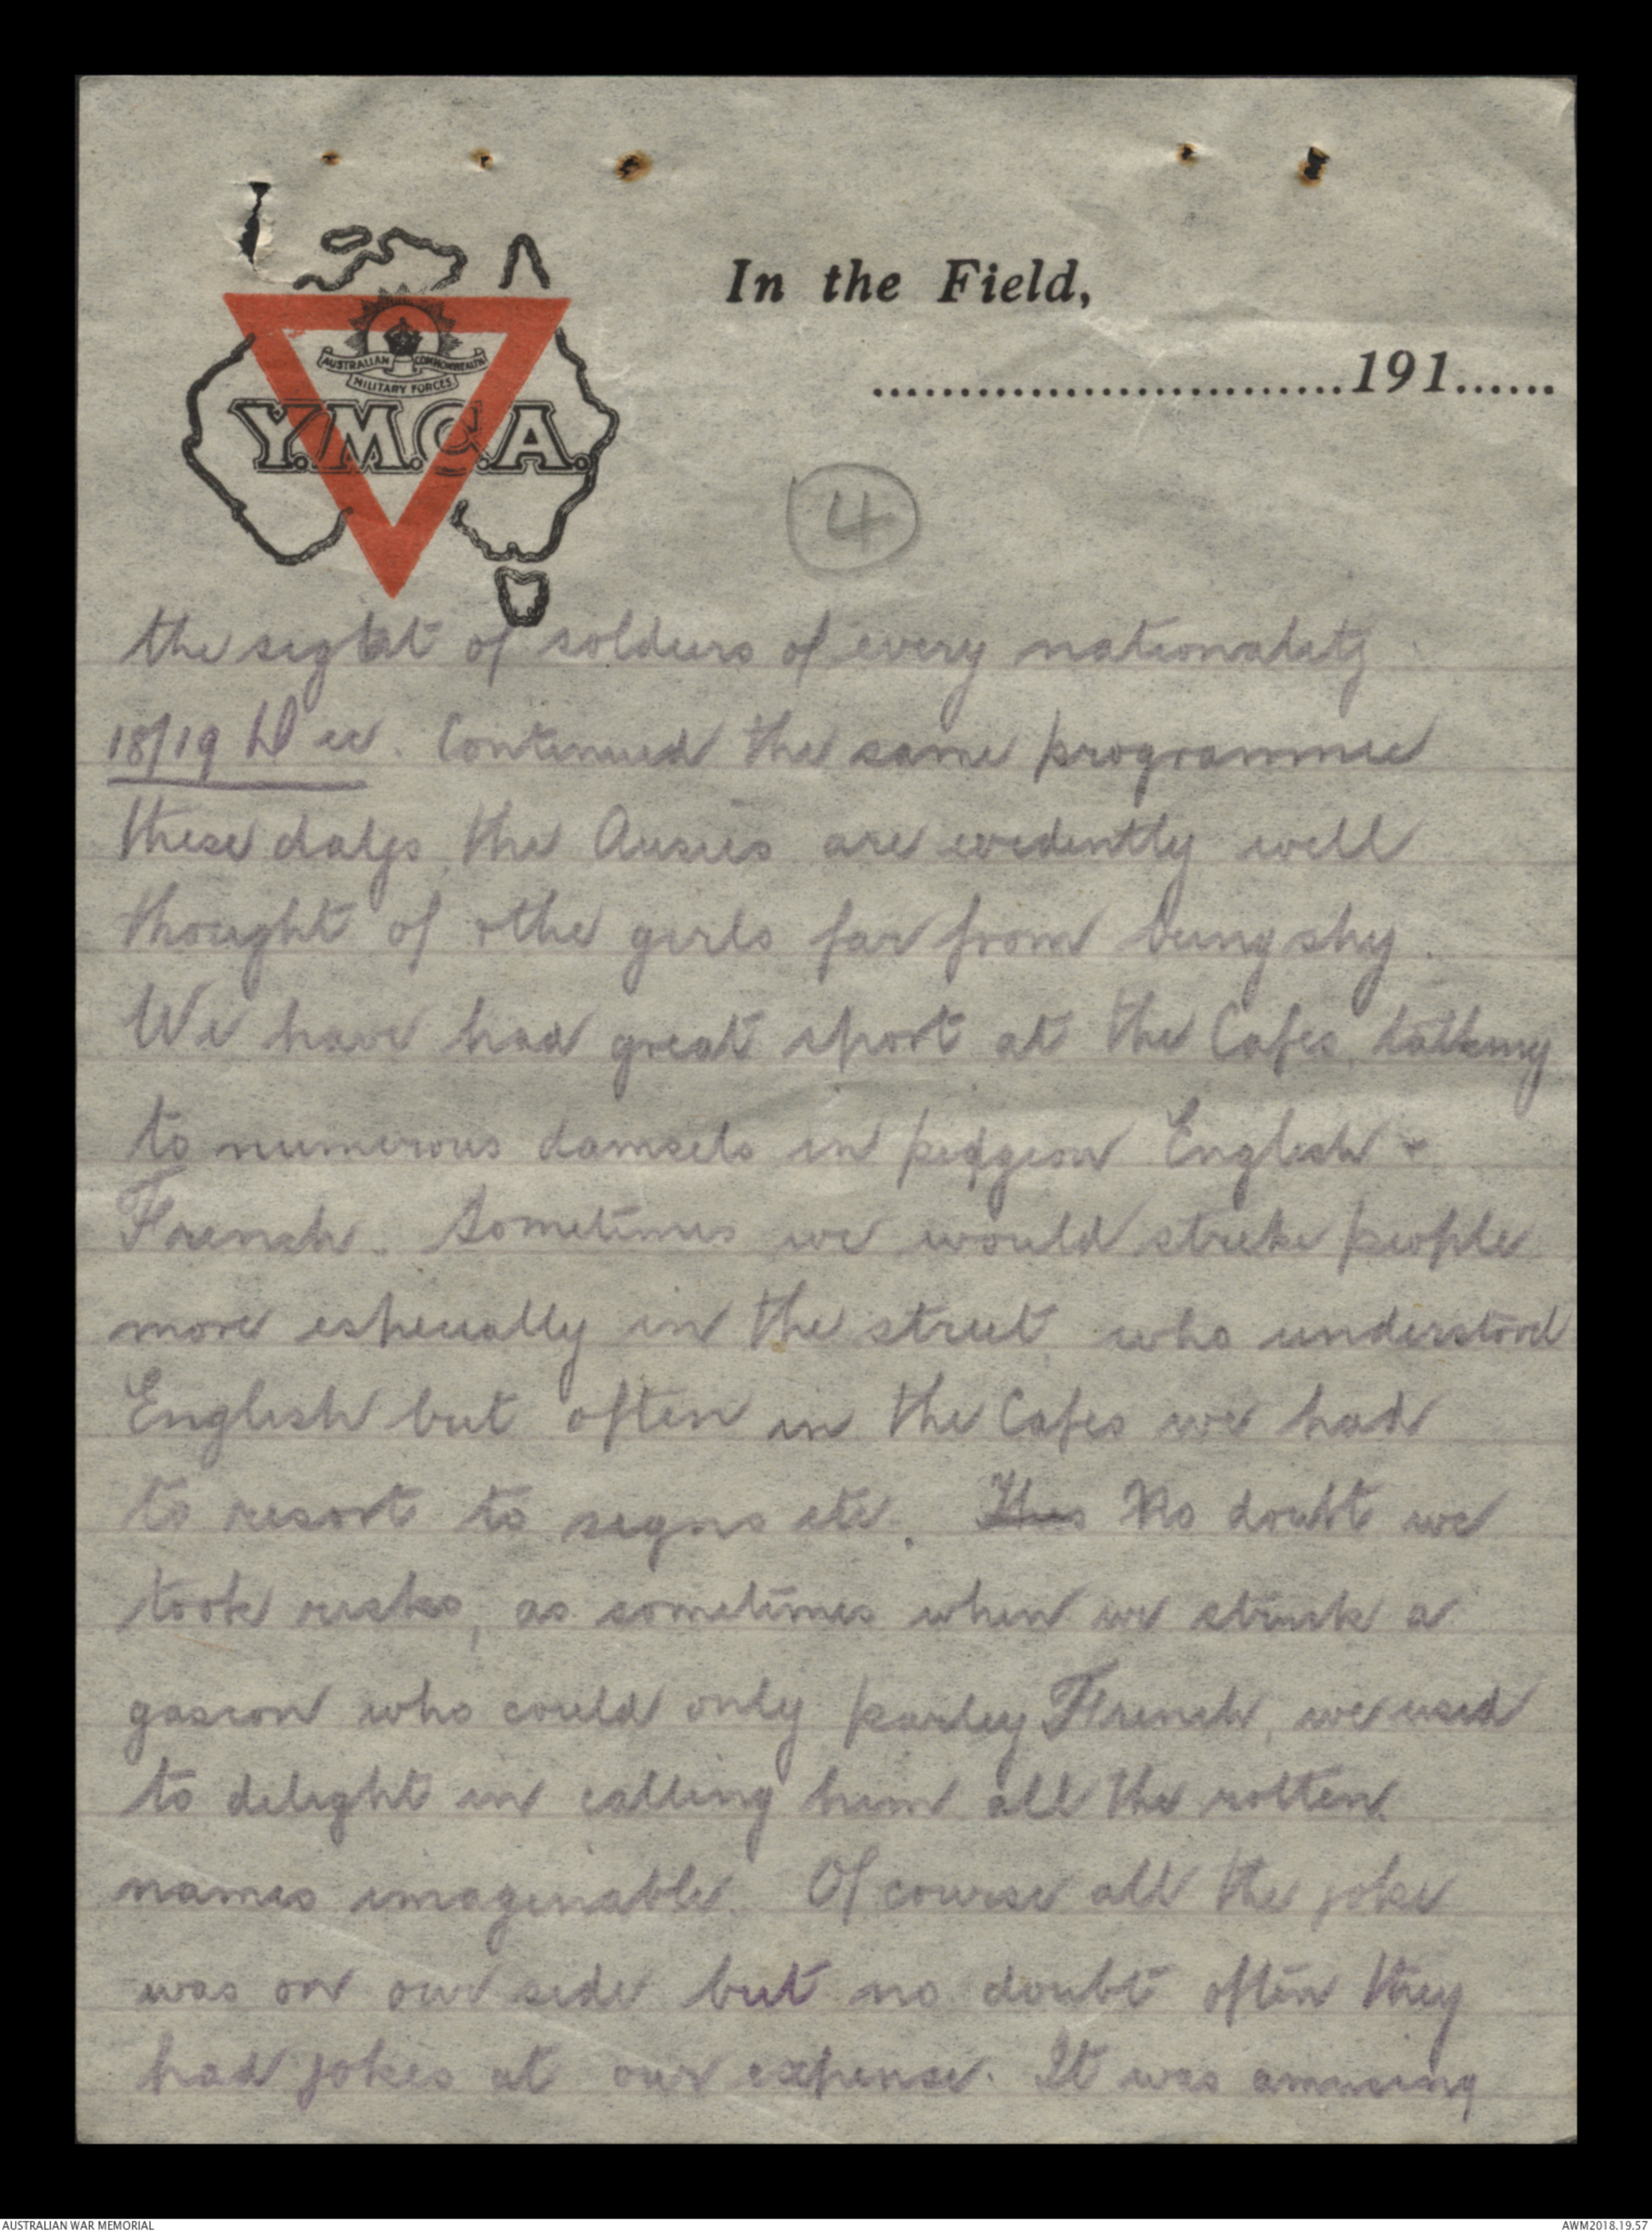 In the Field,
.............................191......
AUSTRALIAN COMMONWEALTH
MILITARY FORCES
Y.M.C.A.
4
the sight of soldiers of every nationality
18/19 Dec. Continued the same programme
these days, the Ausies are evidently well
thought of & the girls far from being shy.
We have had great sport at the Cafes, talking
to numerous damsels in pidgeon English &
French. Sometimes we would strike people
more especially in the street who understood
English but often in the Cafes we had
to resort to signs etc. Thus No doubt we
took risks, as sometimes when we struck a
gascon who could only parley French, we used
to delight in calling him all the rotten
names imaginable. Of course all the joke
was on our side but no doubt often they
had jokes at our expense. It was amusing
AUSTRALIAN WAR MEMORIAL
AWM2018.19.57